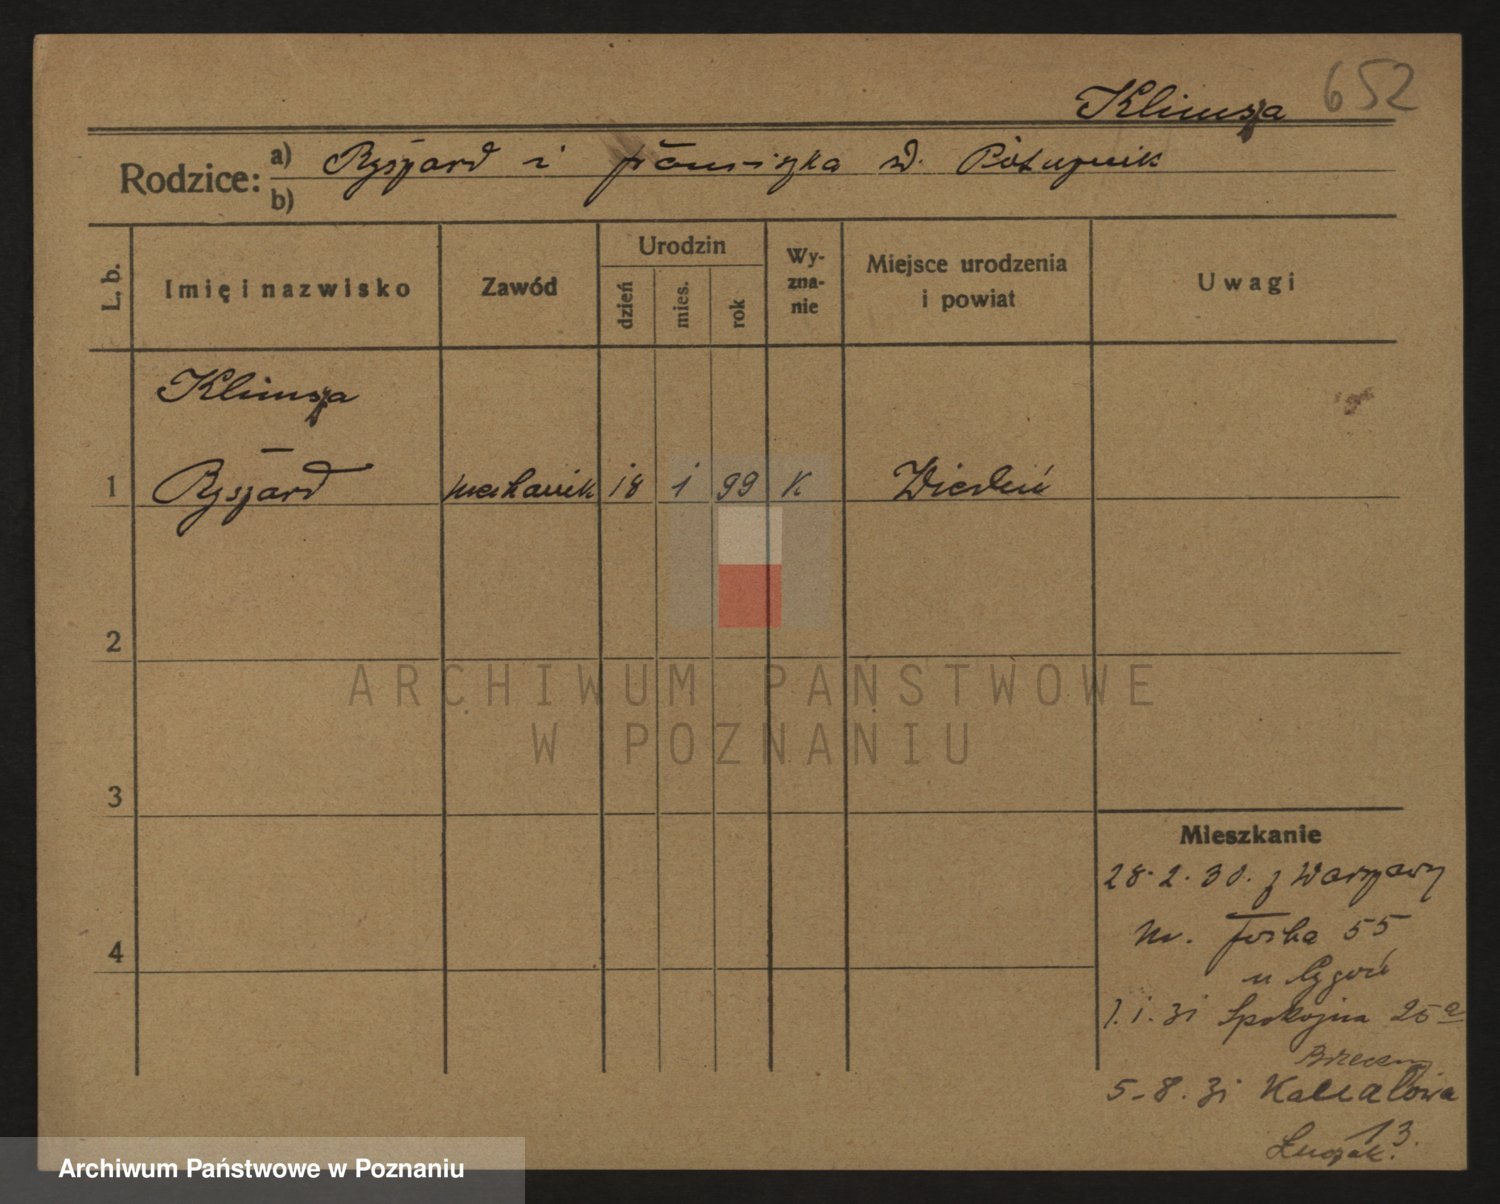 652
Klimsza
Rodzice: a) Ryszard i Franciszka d. Potupnik
b)
L. b.
Imię i nazwisko
Zawód
Urodzin
dzień
mies.
rok
Wy-
zna-
nie
Miejsce urodzenia
i powiat
Uwagi
Klimsza
1 Ryszard mechanik 18 1 99 K Wiedeń
2
3
4
Mieszkanie
28.2.30. z Warszawy
55
u
1.1.31 Spokojna 25a
5.8.31 Kanałowa
13.
ARCHIWUM PAŃSTWOWE
W POZNANIU
Archiwum Państwowe w Poznaniu